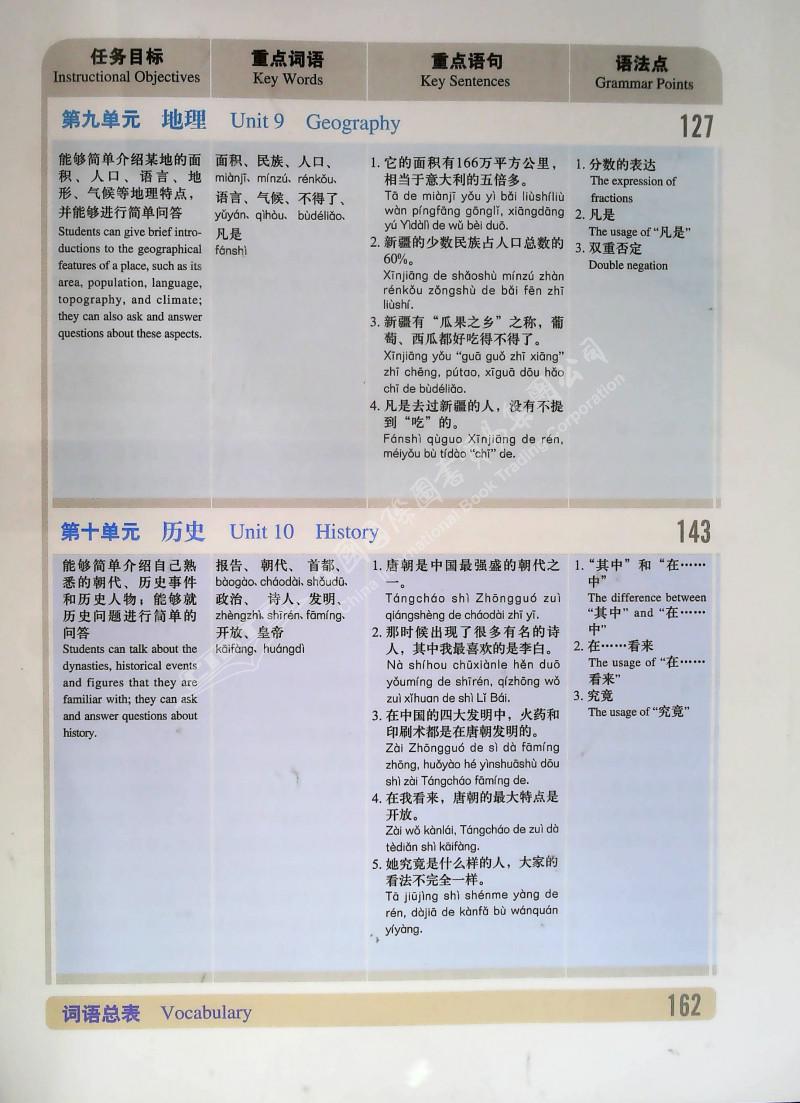 任务目标
Instructional Objectives
重点词语
Key Words
重点语句
Key Sentences
语法点
Grammar Points
第九单元 地理 Unit 9 Geography 127
能够简单介绍某地的面
积、人口、语言、地
形、气候等地理特点，
并能够进行简单问答
Students can give brief intro-
ductions to the geographical
features of a place, such as its
area, population, language,
topography, and climate;
they can also ask and answer
questions about these aspects.
面积、民族、人口、
miànjī、mínzú、rénkǒu、
语言、气候、不得了、
yǔyán、qìhòu、bùdéliǎo、
凡是
fánshì
1. 它的面积有166万平方公里，
相当于意大利的五倍多。
Tā de miànjī yǒu yì bǎi liùshíliù
wàn píngfāng gōnglǐ, xiāngdāng
yú Yìdàlì de wǔ bèi duō.
2. 新疆的少数民族占人口总数的
60%。
Xīnjiāng de shǎoshù mínzú zhàn
rénkǒu zǒngshù de bǎi fēn zhī
liùshí.
3. 新疆有“瓜果之乡”之称，葡
萄、西瓜都好吃得不得了。
Xīnjiāng yǒu “guā guǒ zhī xiāng”
zhī chēng, pútao, xīguā dōu hǎo
chī de bùdéliǎo.
4. 凡是去过新疆的人，没有不提
到“吃”的。
Fánshì qùguo Xīnjiāng de rén,
méiyǒu bù tídào “chī” de.
1. 分数的表达
The expression of
fractions
2. 凡是
The usage of “凡是”
3. 双重否定
Double negation
第十单元 历史 Unit 10 History 143
能够简单介绍自己熟
悉的朝代、历史事件
和历史人物；能够就
历史问题进行简单的
问答
Students can talk about the
dynasties, historical events
and figures that they are
familiar with; they can ask
and answer questions about
history.
报告、朝代、首都、
bàogào、cháodài、shǒudū、
政治、诗人、发明、
zhèngzhì、shīrén、fāmíng、
开放、皇帝
kāifàng、huángdì
1. 唐朝是中国最强盛的朝代之
一。
Tángcháo shì Zhōngguó zuì
qiángshèng de cháodài zhī yī.
2. 那时候出现了很多有名的诗
人，其中我最喜欢的是李白。
Nà shíhou chūxiànle hěn duō
yǒumíng de shīrén, qízhōng wǒ
zuì xǐhuan de shì Lǐ Bái.
3. 在中国的四大发明中，火药和
印刷术都是在唐朝发明的。
Zài Zhōngguó de sì dà fāmíng
zhōng, huǒyào hé yìnshuāshù dōu
shì zài Tángcháo fāmíng de.
4. 在我看来，唐朝的最大特点是
开放。
Zài wǒ kànlái, Tángcháo de zuì dà
tèdiǎn shì kāifàng.
5. 她究竟是什么样的人，大家的
看法不完全一样。
Tā jiūjìng shì shénme yàng de
rén, dàjiā de kànfǎ bù wánquán
yíyàng.
1. “其中”和“在……
中”
The difference between
“其中” and “在……
中”
2. 在……看来
The usage of “在……
看来”
3. 究竟
The usage of “究竟”
词语总表 Vocabulary 162